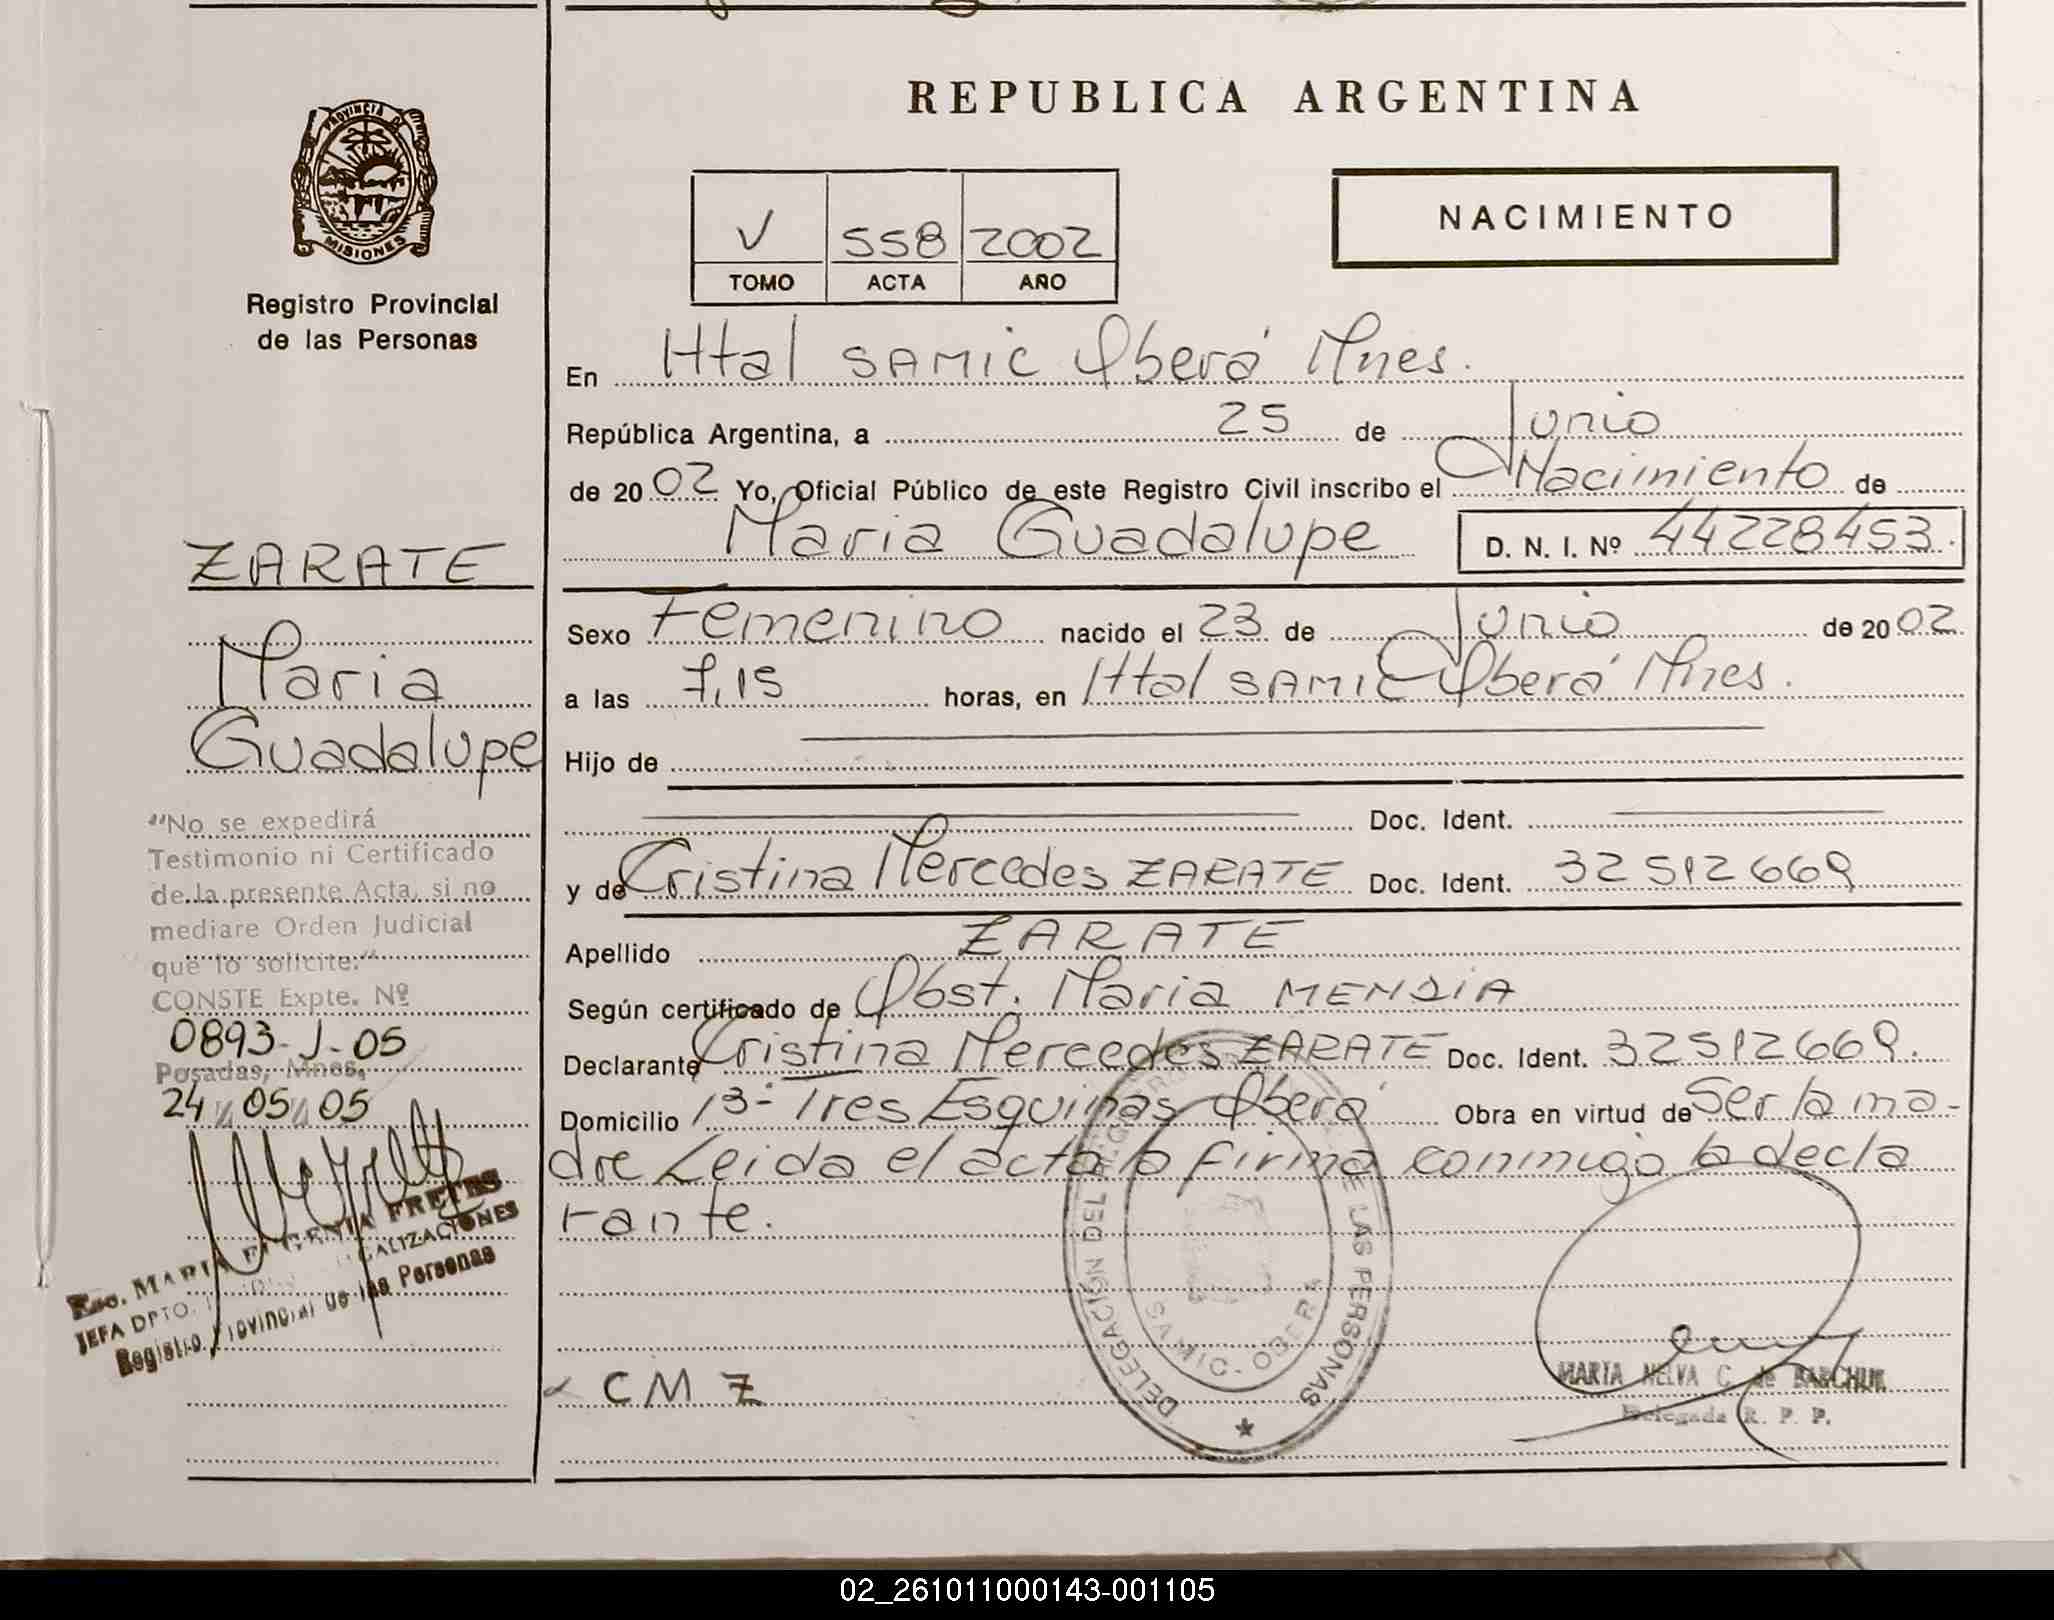 REPUBLICA ARGENTINA
PROVINCIA DE
MISIONES
Registro Provincial
de las Personas
V 558 2002
TOMO ACTA AÑO
NACIMIENTO
En Htal SAMIC Oberá Mnes.
República Argentina, a 25 de Junio
de 2002 Yo, Oficial Público de este Registro Civil inscribo el Nacimiento de
Maria Guadalupe D. N. I. Nº 44228453.
Sexo Femenino nacido el 23 de Junio de 2002
a las 7,15 horas, en Htal SAMIC Oberá Mnes.
Hijo de
Doc. Ident.
y de Cristina Mercedes ZARATE Doc. Ident. 32512669
Apellido ZARATE
Según certificado de Obst. Maria
Declarante Cristina Mercedes ZARATE Doc. Ident. 32512669.
Domicilio Bº Tres Esquinas Oberá Obra en virtud de Ser la ma-
dre Leida el acta la firma conmigo la decla
rante.
CMZ
DELEGACIÓN DEL REGISTRO PROVINCIAL DE LAS PERSONAS
SAMIC - OBERA
MARIA NELVA C. de
Delegada R. P. P.
ZARATE
Maria
Guadalupe
"No se expedirá
Testimonio ni Certificado
de la presente Acta, si no
mediare Orden Judicial
que lo solicite."
CONSTE Expte. Nº
0893-J-05
Posadas, Mnes,
24 / 05 / 05
Esc. MARIA EUGENIA FRETES
JEFA DPTO. LEGALIZACIONES
Registro Provincial de las Personas
02_261011000143-001105